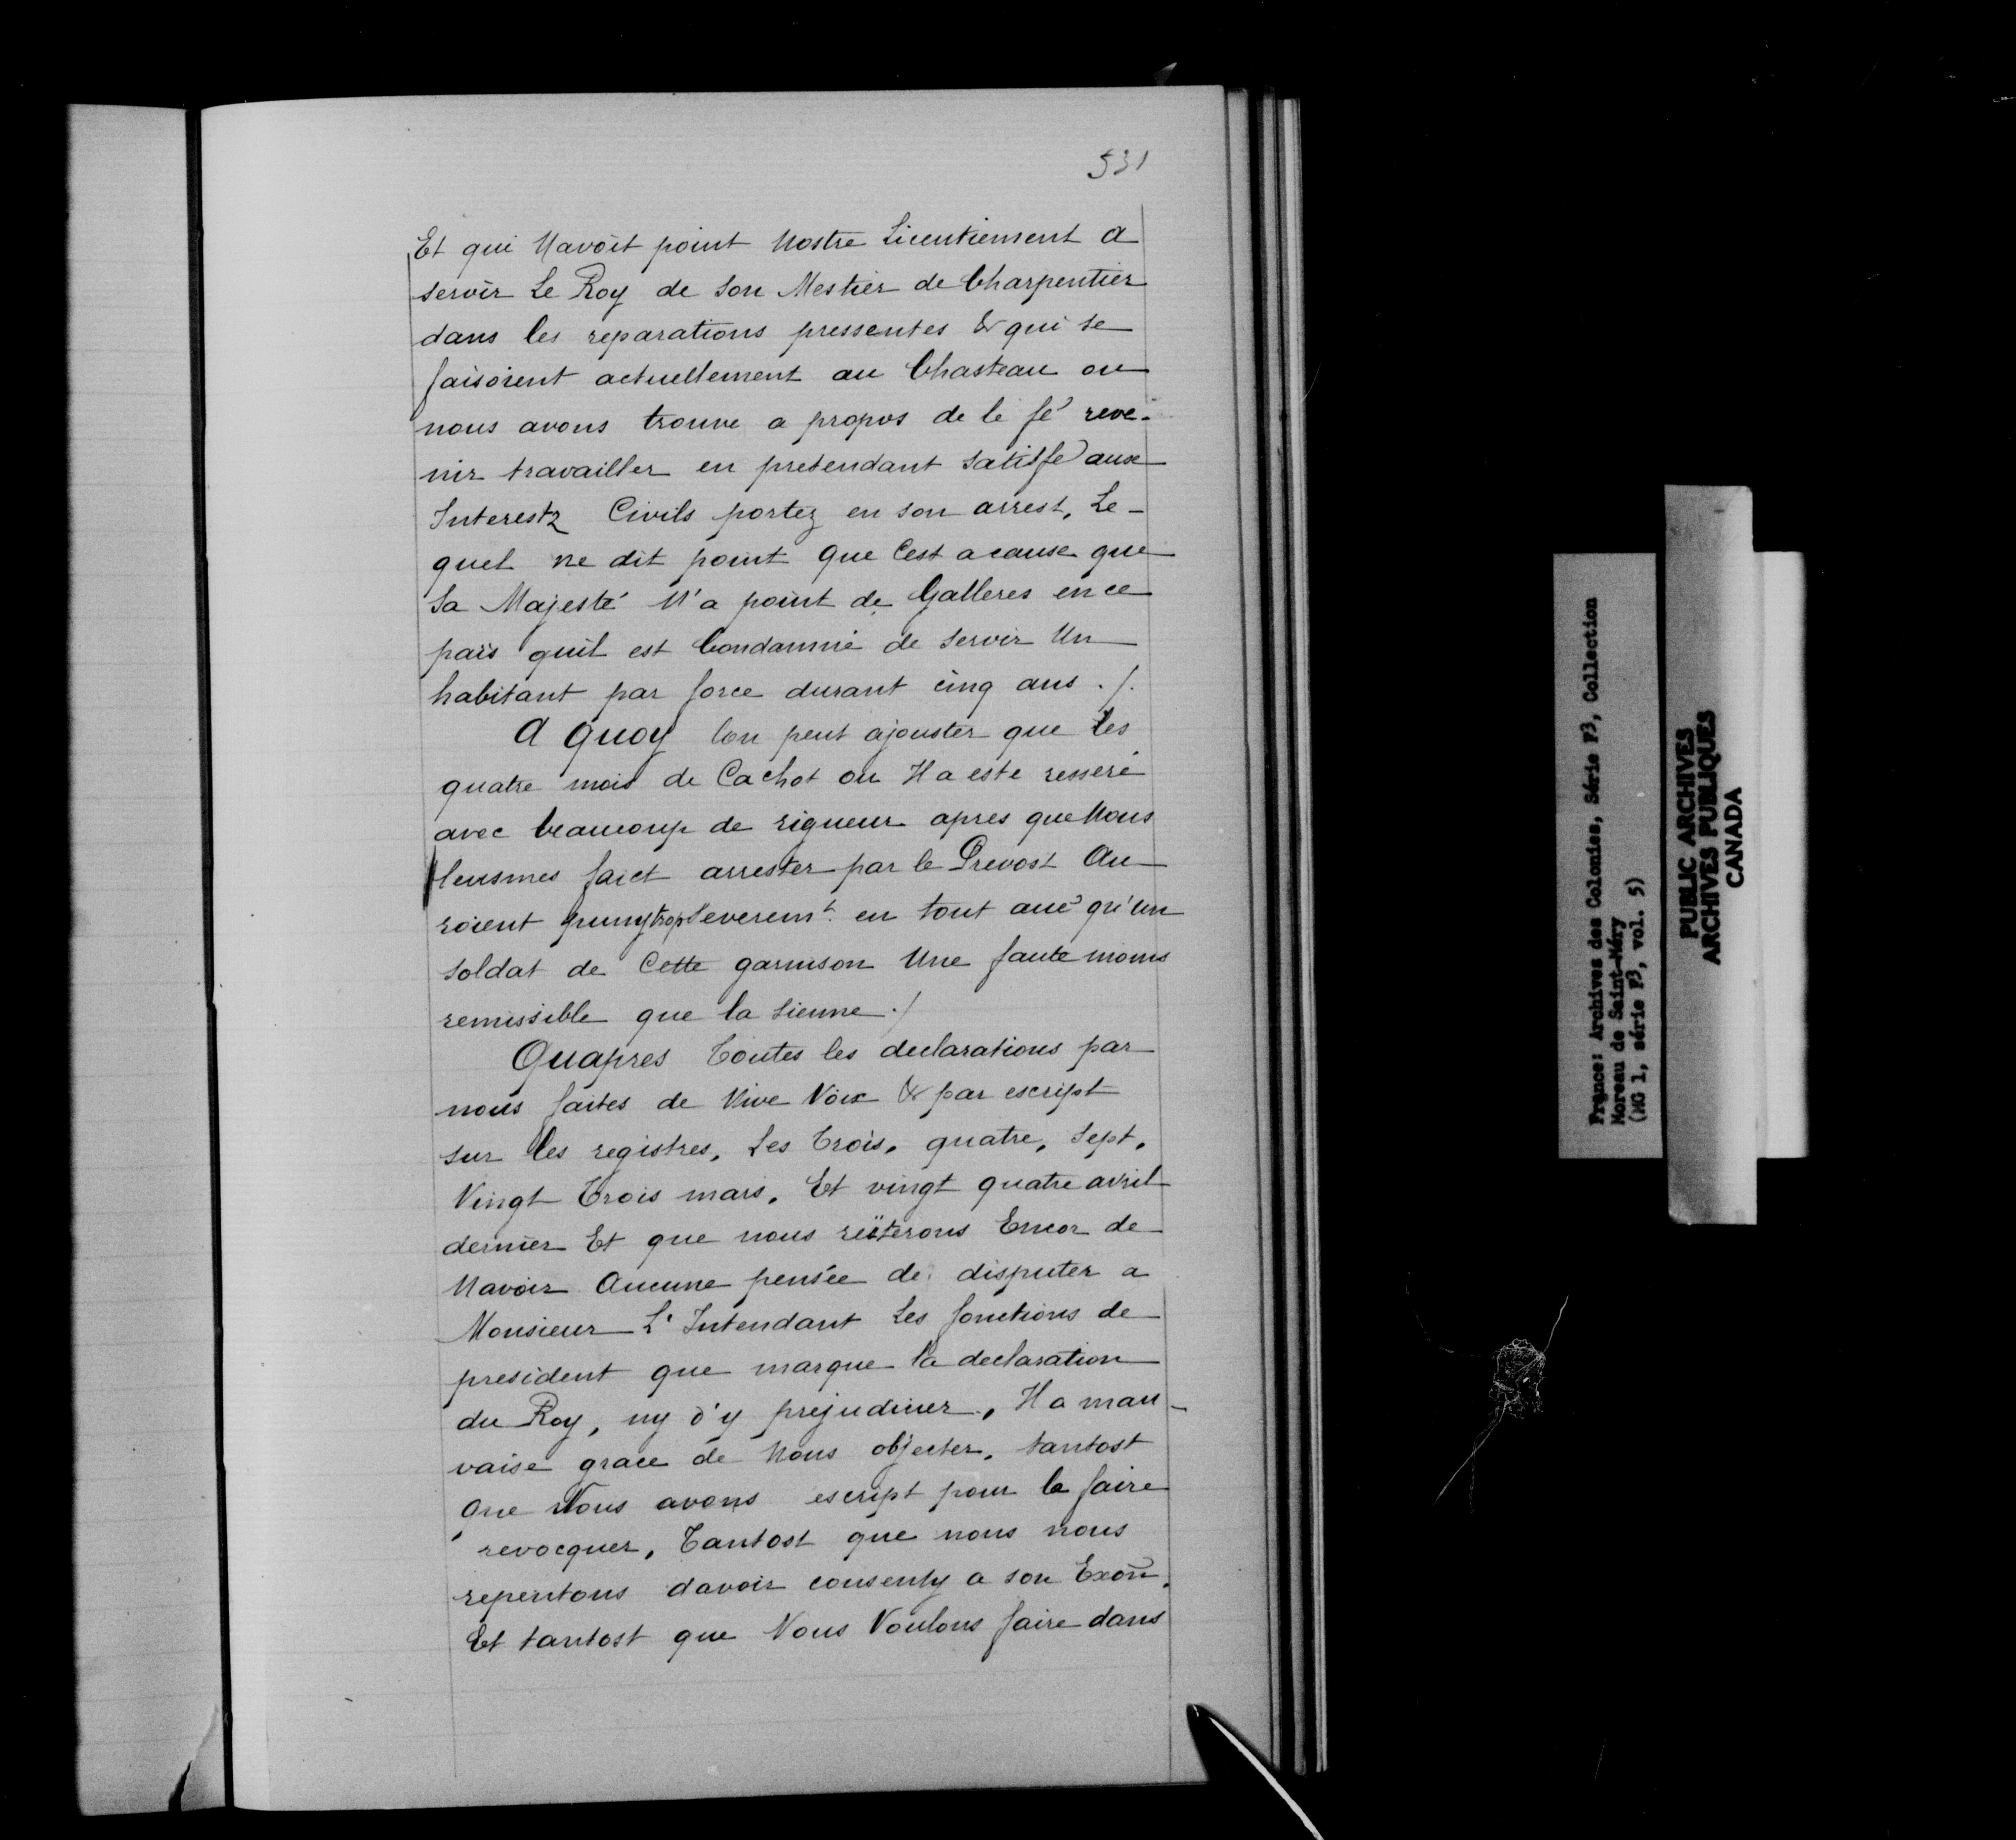 531
Et qui Navoit point Nostre Licentiement a
servir Le Roy de son Mestier de Charpentier
dans les reparations pressentes & qui se
faisoient actuellement au Chasteau ou
nous avons trouve a propos de le fe reve-
nir travailler en pretendant satisfe aux
Interestz Civils portez en son arrest, Le-
quel ne dit point que C'est a cause que
Sa Majesté N'a point de Galleres en ce
païs quil est Condamné de servir Un
habitant par force durant cinq ans ./.
A Quoy lon peut ajouster que Les
quatre mois de Cachot ou Il a este resseré
avec beaucoup de rigueur apres que Nous
leusmes faict arrester par le Prevost Au-
roient puny trop severemt. en tout aue qu'un
soldat de Cette garnison Une faute moins
remissible que la sienne ./
Quapres Toutes les declarations par
nous faites de Vive Voix & par escript
sur les registres, Les Trois, quatre, Sept,
Vingt Trois mars, Et vingt quatre avril
dernier Et que nous reïterons Encor de
Navoir Aucune pensée de disputer a
Monsieur L'Intendant Les fonctions de
president que marque la declaration
du Roy, ny d'y prejudicier, Il a mau-
vaise grace de Nous objecter, tantost
que Nous avons escript pour le faire
revocquer, Tantost que nous nous
repentons davoir consenty a son Exon,
Et tantost que Nous Voulons faire dans
France: Archives des Colonies, Série F3, Collection
Moreau de Saint-Méry
(MG 1, série F3, vol. 5)
PUBLIC ARCHIVES
ARCHIVES PUBLIQUES
CANADA